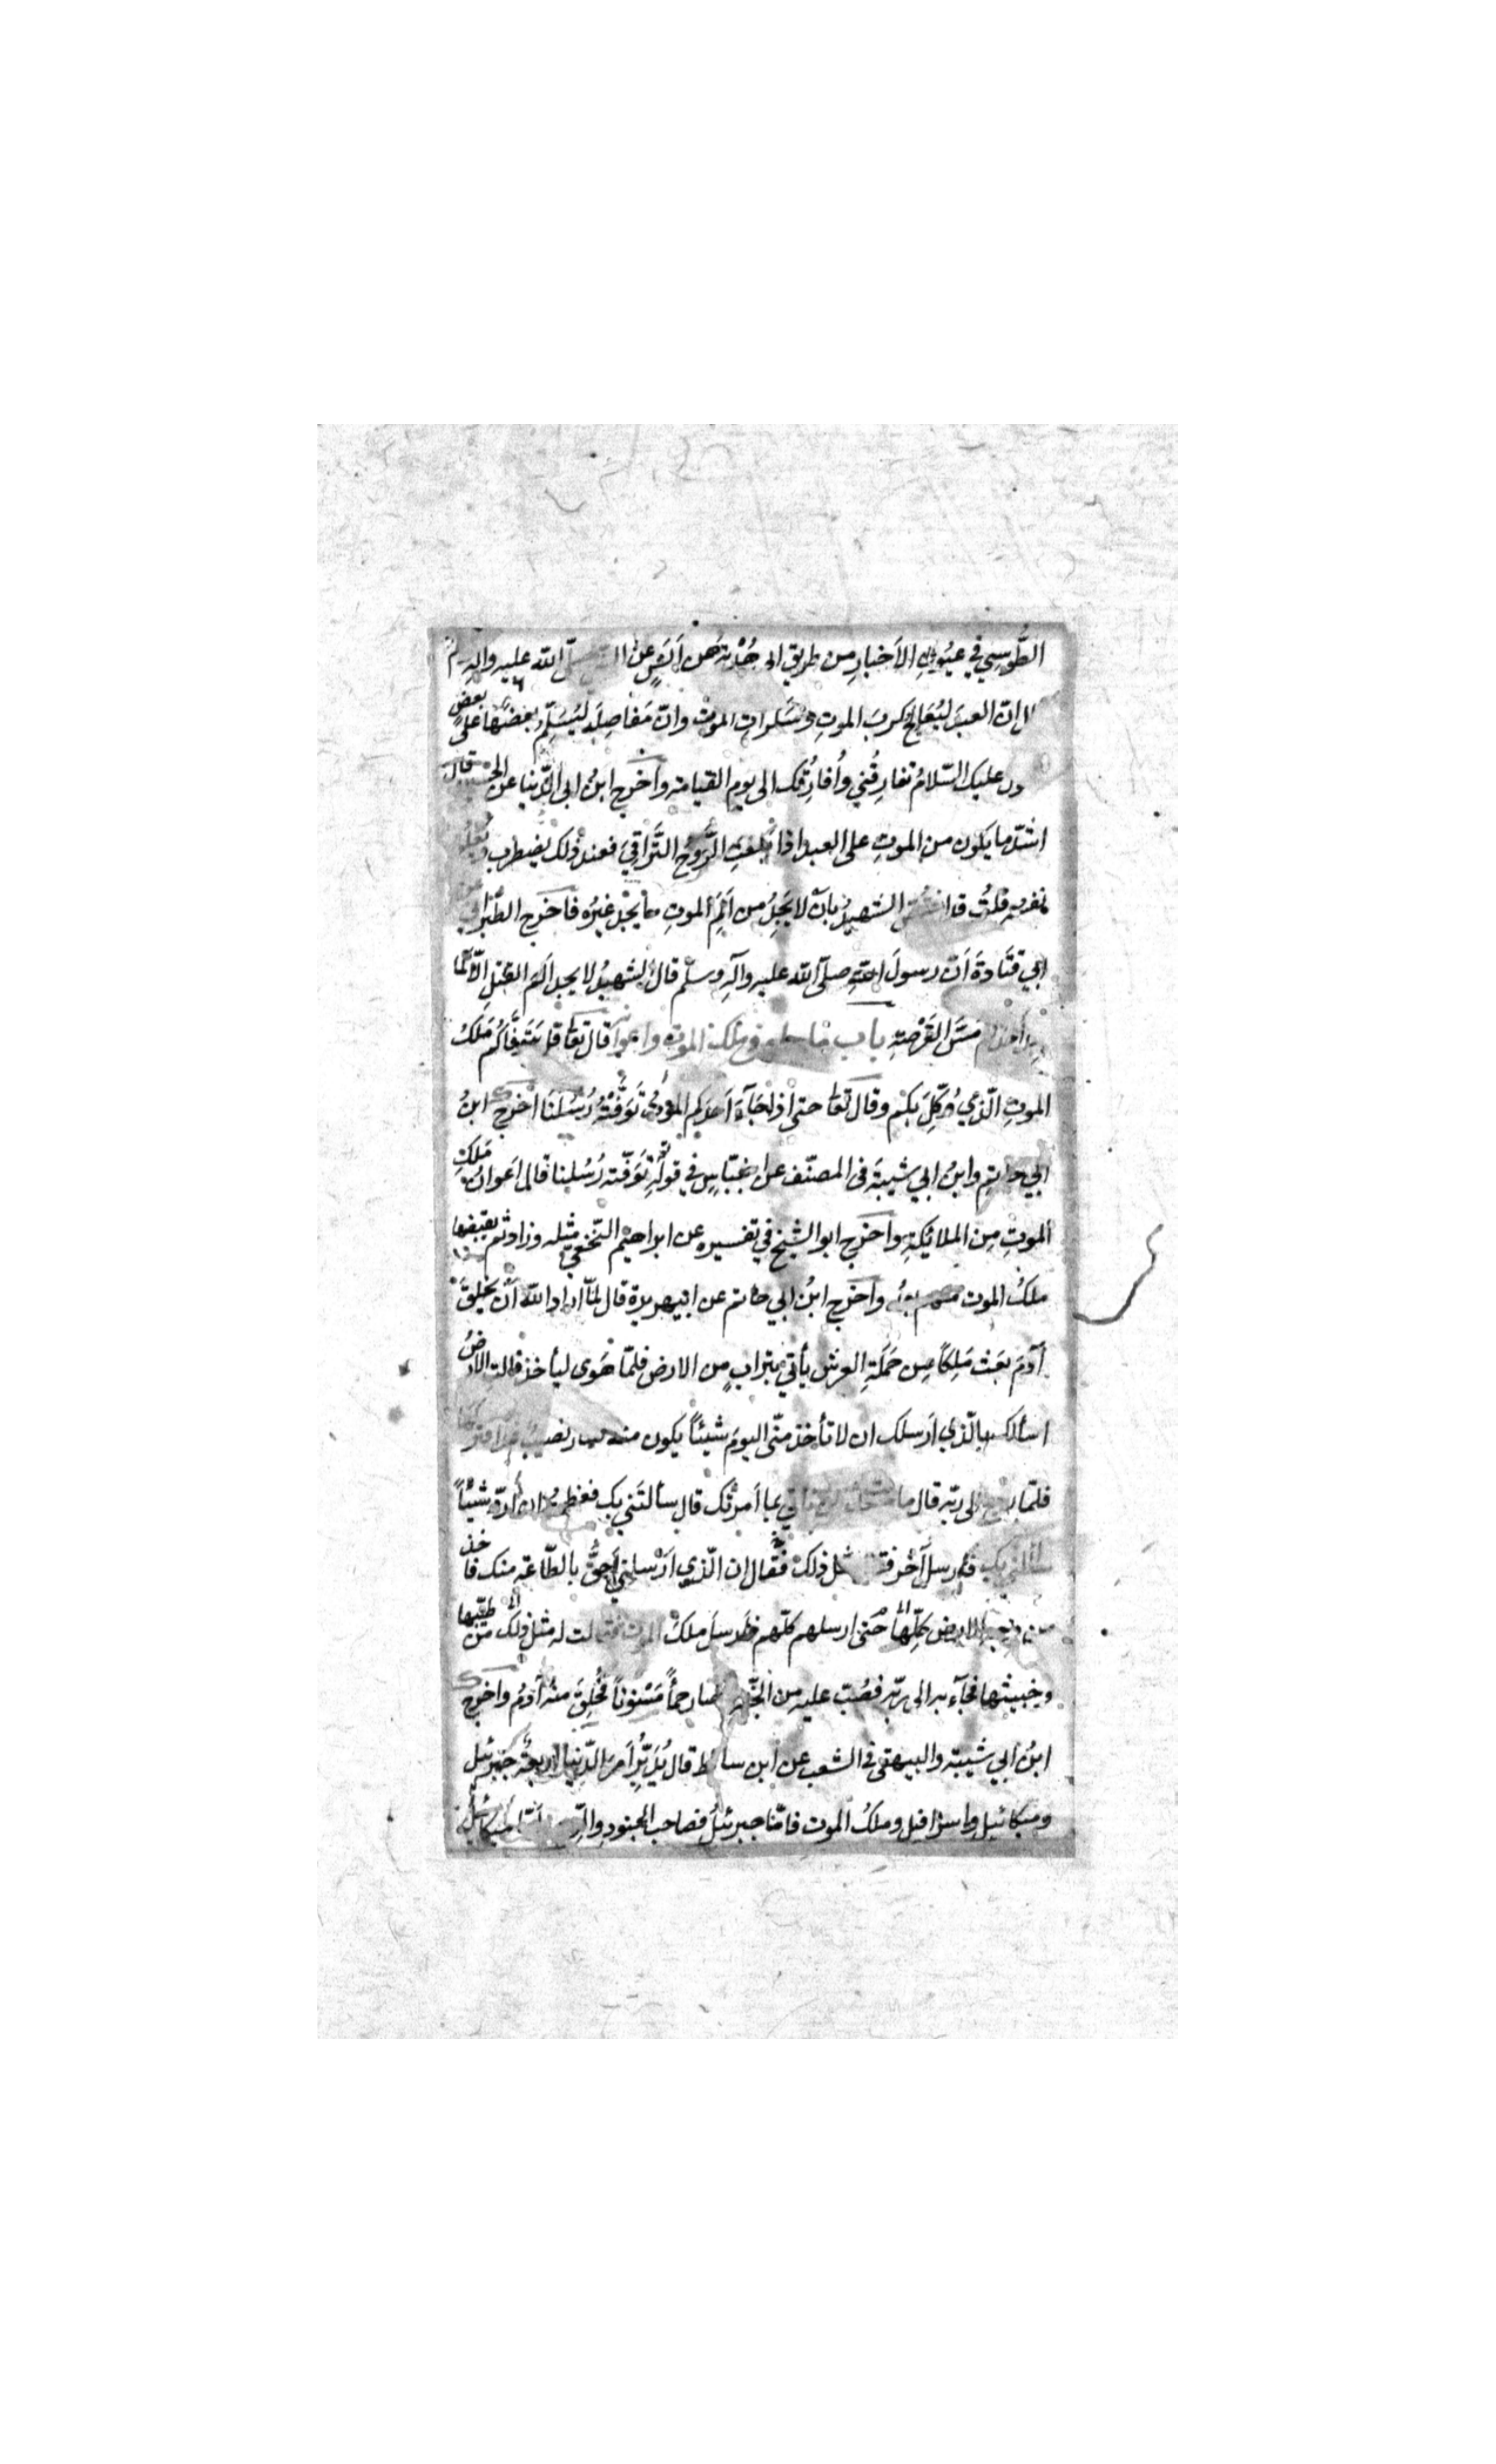 الطُّوسِي في عيُون الأَخبارِ من طريق ابي هُدْبة عن أَنَسٍ عن صلّى الله عليه واله
انّ العبدَ ليُعَالج كربَ الموتِ وسَكراتِ الموت وانّ مَفاصِلَه ليُسَلِّم بعضُها على بعض
عليك السّلامُ تفارِقُني وأُفارِقُك الى يوم القيامة واَخرج ابنُ ابى الدّنيا عن الحسن قال
اشدّ ما يكون من الموتِ على العبد اذا بَلغتِ الرّوحُ التَّراقيَ فعند ذلك يضطرب
قلتُ قد الشهيدُ بان لا يَجِدُ من اَلَمِ الموتِ ما يجد غيرُه فاخرج الطّبراني
ابي قتَادةَ اَنّ رسولَ الله صلّى الله عليه وآلِه وسلّم قال الشهيدُ لا يجد اَلَم القتل الّا كما
مَسّ القَرْصَةِ باب ملك الموت واعوانه قال تعالى قل يَتَوَفَّاكُم مَلَكُ
الموتِ الّذي وُكِّلَ بكم وقال تعالى حتى اذا جَآءَ اَحدَكم الموتُ تَوَفَّتْهُ رُسُلُنَا اَخرج ابنُ
ابي حاتِم وابنُ ابي شيبَة فى المصنّف عن ابن عبّاسٍ في قولِه تَوَفّته رُسُلنا قال اَعوانُ مَلَكِ
الموتِ مِن الملائكةِ واخرج ابو الشيخ في تفسيره عن ابراهيم النّخعيّ مثله وزاد ثم يقبضها
ملكُ الموت منهم بعدُ واَخرج ابنُ ابي حاتم عن ابيهريرة قال لمّا اراد الله أن يخلِقَ
آدَمَ بعَث مَلكاً مِن حَمَلَةِ العرش يأتي بترابٍ من الارض فلمّا هَوى ليأخذ قالتِ الارضُ
اسألك بالّذي اَرسلك ان لا تأخذ منّى اليومَ شيئاً يكون منه نصيبٌ فتركها
فلمّا رجع الى ربّه قال ما تأتي بما اَمرتُك قال سألتَني بك فعظمتُ ان اَردّ شيئاً
سألني بك فارسل آخر مثل ذلك فقال ان الّذي اَرْسلني اَحقُّ بالطّاعة منك فاخذ
من وجه الارض كلّها حَتى ارسلهم كلّهم فارسلَ ملكَ الموت فقالت له مثل ذلك من طيّبها
وخبيثها فجآء به الى ربّه فصُبّ عليه من الجنّة فصار حمأً مَسْنوناً فخُلِقَ منهُ آدمُ واَخرج
ابنُ ابي شيبَة والبيهقى في الشعب عن ابن سابط قال يُدَبِّرُ اَمرَ الدّنيا اربعةٌ جبرئيل
وميكائيل واسرافيل وملكُ الموت فامّا جبرئيلُ فصاحب الجنود والرّيح وامّا ميكائيل